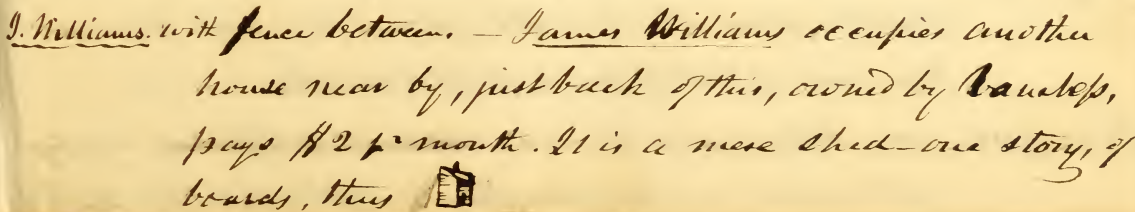 J. Williams. with fence between. — James Williams occupies another
house near by, just back of this, owned by
pays $2 pr month. It is a mere shed — one story, of
boards, thus